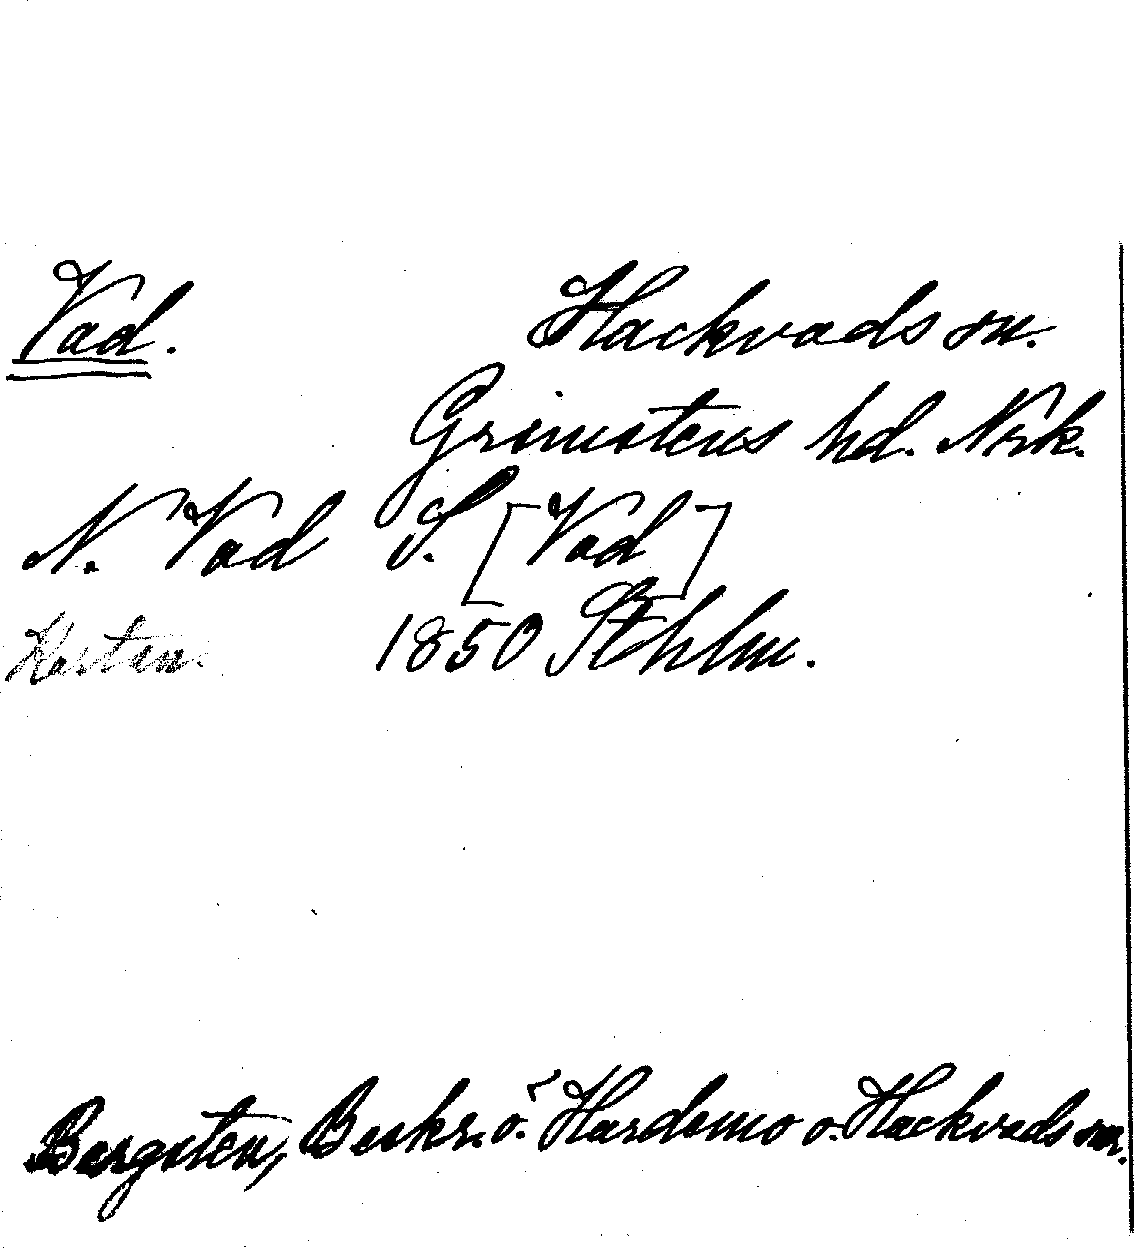 Vad. Hackvads sn.
Grimstens hd. Nrk.
N. Vad S. [Vad]
Kartan. 1850 Sthlm.
Bergsten, Beskr. ö. Hardemo o. Hackvads snr.